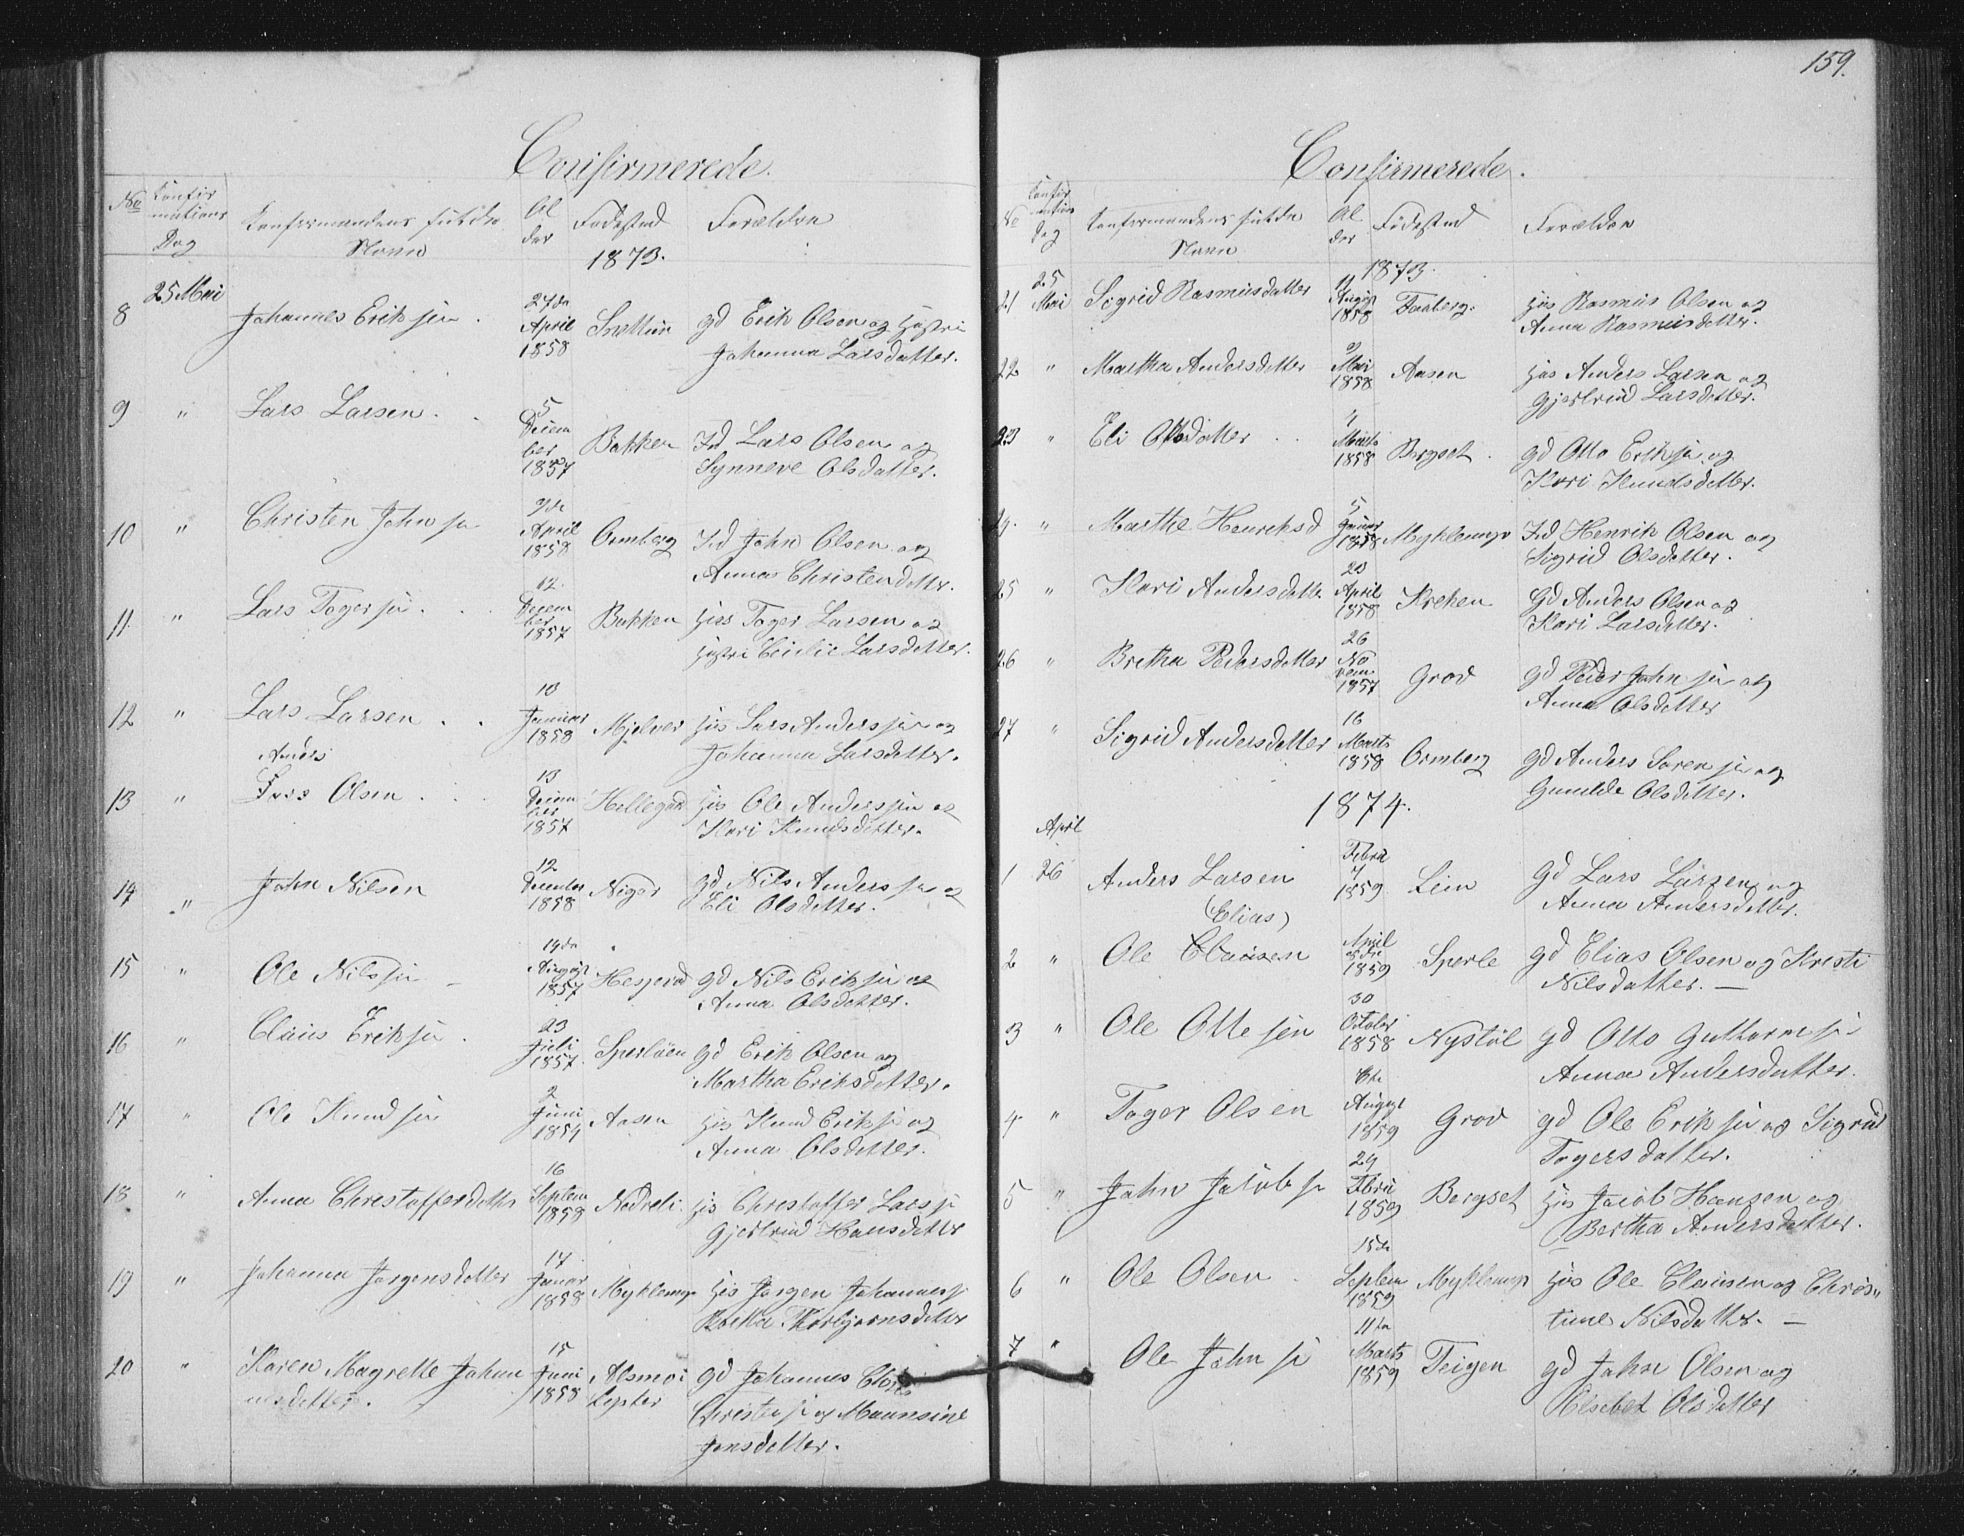 Confirmerede.
No Konfirmations Dag
Konfirmandens fulde Navn
Alder
Fødested
Forældre
1873.
8 25 Mai Johannes Eriksen . 24de April 1858 Snettun gd Erik Olsen og Hustru
Johanna Larsdatter.
9 " Lars Larsen . . 5 December 1857 Bakken Lars Olsen og
Synneve Olsdatter.
10 " Christen Johnsen April 1858 Ormberg John Olsen og
Anna Christendatter.
11 " Lars Toger sen . . . 12. December 1857 Bakken Hus Toger Larsen og
Hustru Cicilie Larsdatter.
12 " Lars Larsen . . 10 Januar 1858 Mjelver Hus Lars Anderssen og
Johanna Larsdatter.
Anders
13 " Olsen . . . 13 December 1857 Hellegard Hus Ole Anderssen og
Kari Knudsdatter.
14 " John Nilsen 12 December 1858 Niger gd Nils Anderssen og
Eli Olsdatter.
15 " Ole Nilssen 14de August 1857 Hesjerad gd Nils Eriksen og
Anna Olsdatter.
16 " Claus Eriksen . 23 Juli 1857. Sperlaen gd Erik Olsen og
Martha Eriksdatter.
17 " Ole Knudsen 2 Juni Aasen Hus Knud Eriksen og
Anna Olsdatter.
18 " Anna Chrestofferdatter 16 Septem 1858 Nedreli. Hus Chrestoffer Larssen
Gjertrud Hansdatter
19 " Johanna Jørgensdatter 17. Januar 1858 Myklemyr Hus Jørgen Johannessen
Thorbjørnsdatter
20 " Karen Magrette Johannesdatter. 15 Juni 1858 gd Johannes
og
Jensdatter.
159.
Confirmerede.
No Konfirmations Dag
Konfirmandens fulde Navn
Alder
Fødested
Forældre
1873.
21 25 Mai Sigrid Rasmusdatter 11 August 1858 Faaberg. Hus Rasmus Olsen og
Anna Rasmusdatter.
22 " Martha Andersdatter Mai 1858 Aasen Hus Anders Larsen og
Gjertrud Larsdatter.
23 " Eli Ottosdatter . . Marts 1858 Bergset . gd Otto Eriksen og
Kari Knudsdatter.
24. " Marthe Henriksd 5 Januar 1858 Myklemyr Henrik Olsen og
Sigrid Olsdatter.
25 " Kari Andersdatter 23 April 1858 Kreken Gd Anders Olsen og
Kari Larsdatter.
26 " Bretha Pedersdatter 26 Novem 1857 Grov gd Peder Johnsen og
Anna Olsdatter
27 " Sigrid Andersdatter 16 Marts 1858 Ormberg gd Anders Sørensen og
Gunilde Olsdatter.
1874.
April
1 26 Anders Larsen Febru 1859. Leim Gd Lars Larsen og
Anna Andersdatter.
(Elias)
2 " Ole Clausen April 1859 Sperle gd Elias Olsen og Kristi
Nilsdatter. —
3 " Ole Ottesen 30 October 1858 Nystøl gd Otto Guttormsen
Anna Andersdatter.
4 " Toger Olsen August 1859 Grov gd Ole Eriksen og Sigrid
Togersdatter.
5 " John Jakobsen 24 Febru 1859 Bergset Hus Jacob Hansen og
Bertha Andersdatter.
6 " Ole Olsen . 15de Septem 1859 Myklemyr Hus Ole Clausen og Chris=
tine Nilsdatter. —
7 " Ole Johnsen 11te Marts 1859 Teigen gd John Olsen og
Elsebet Olsdatter